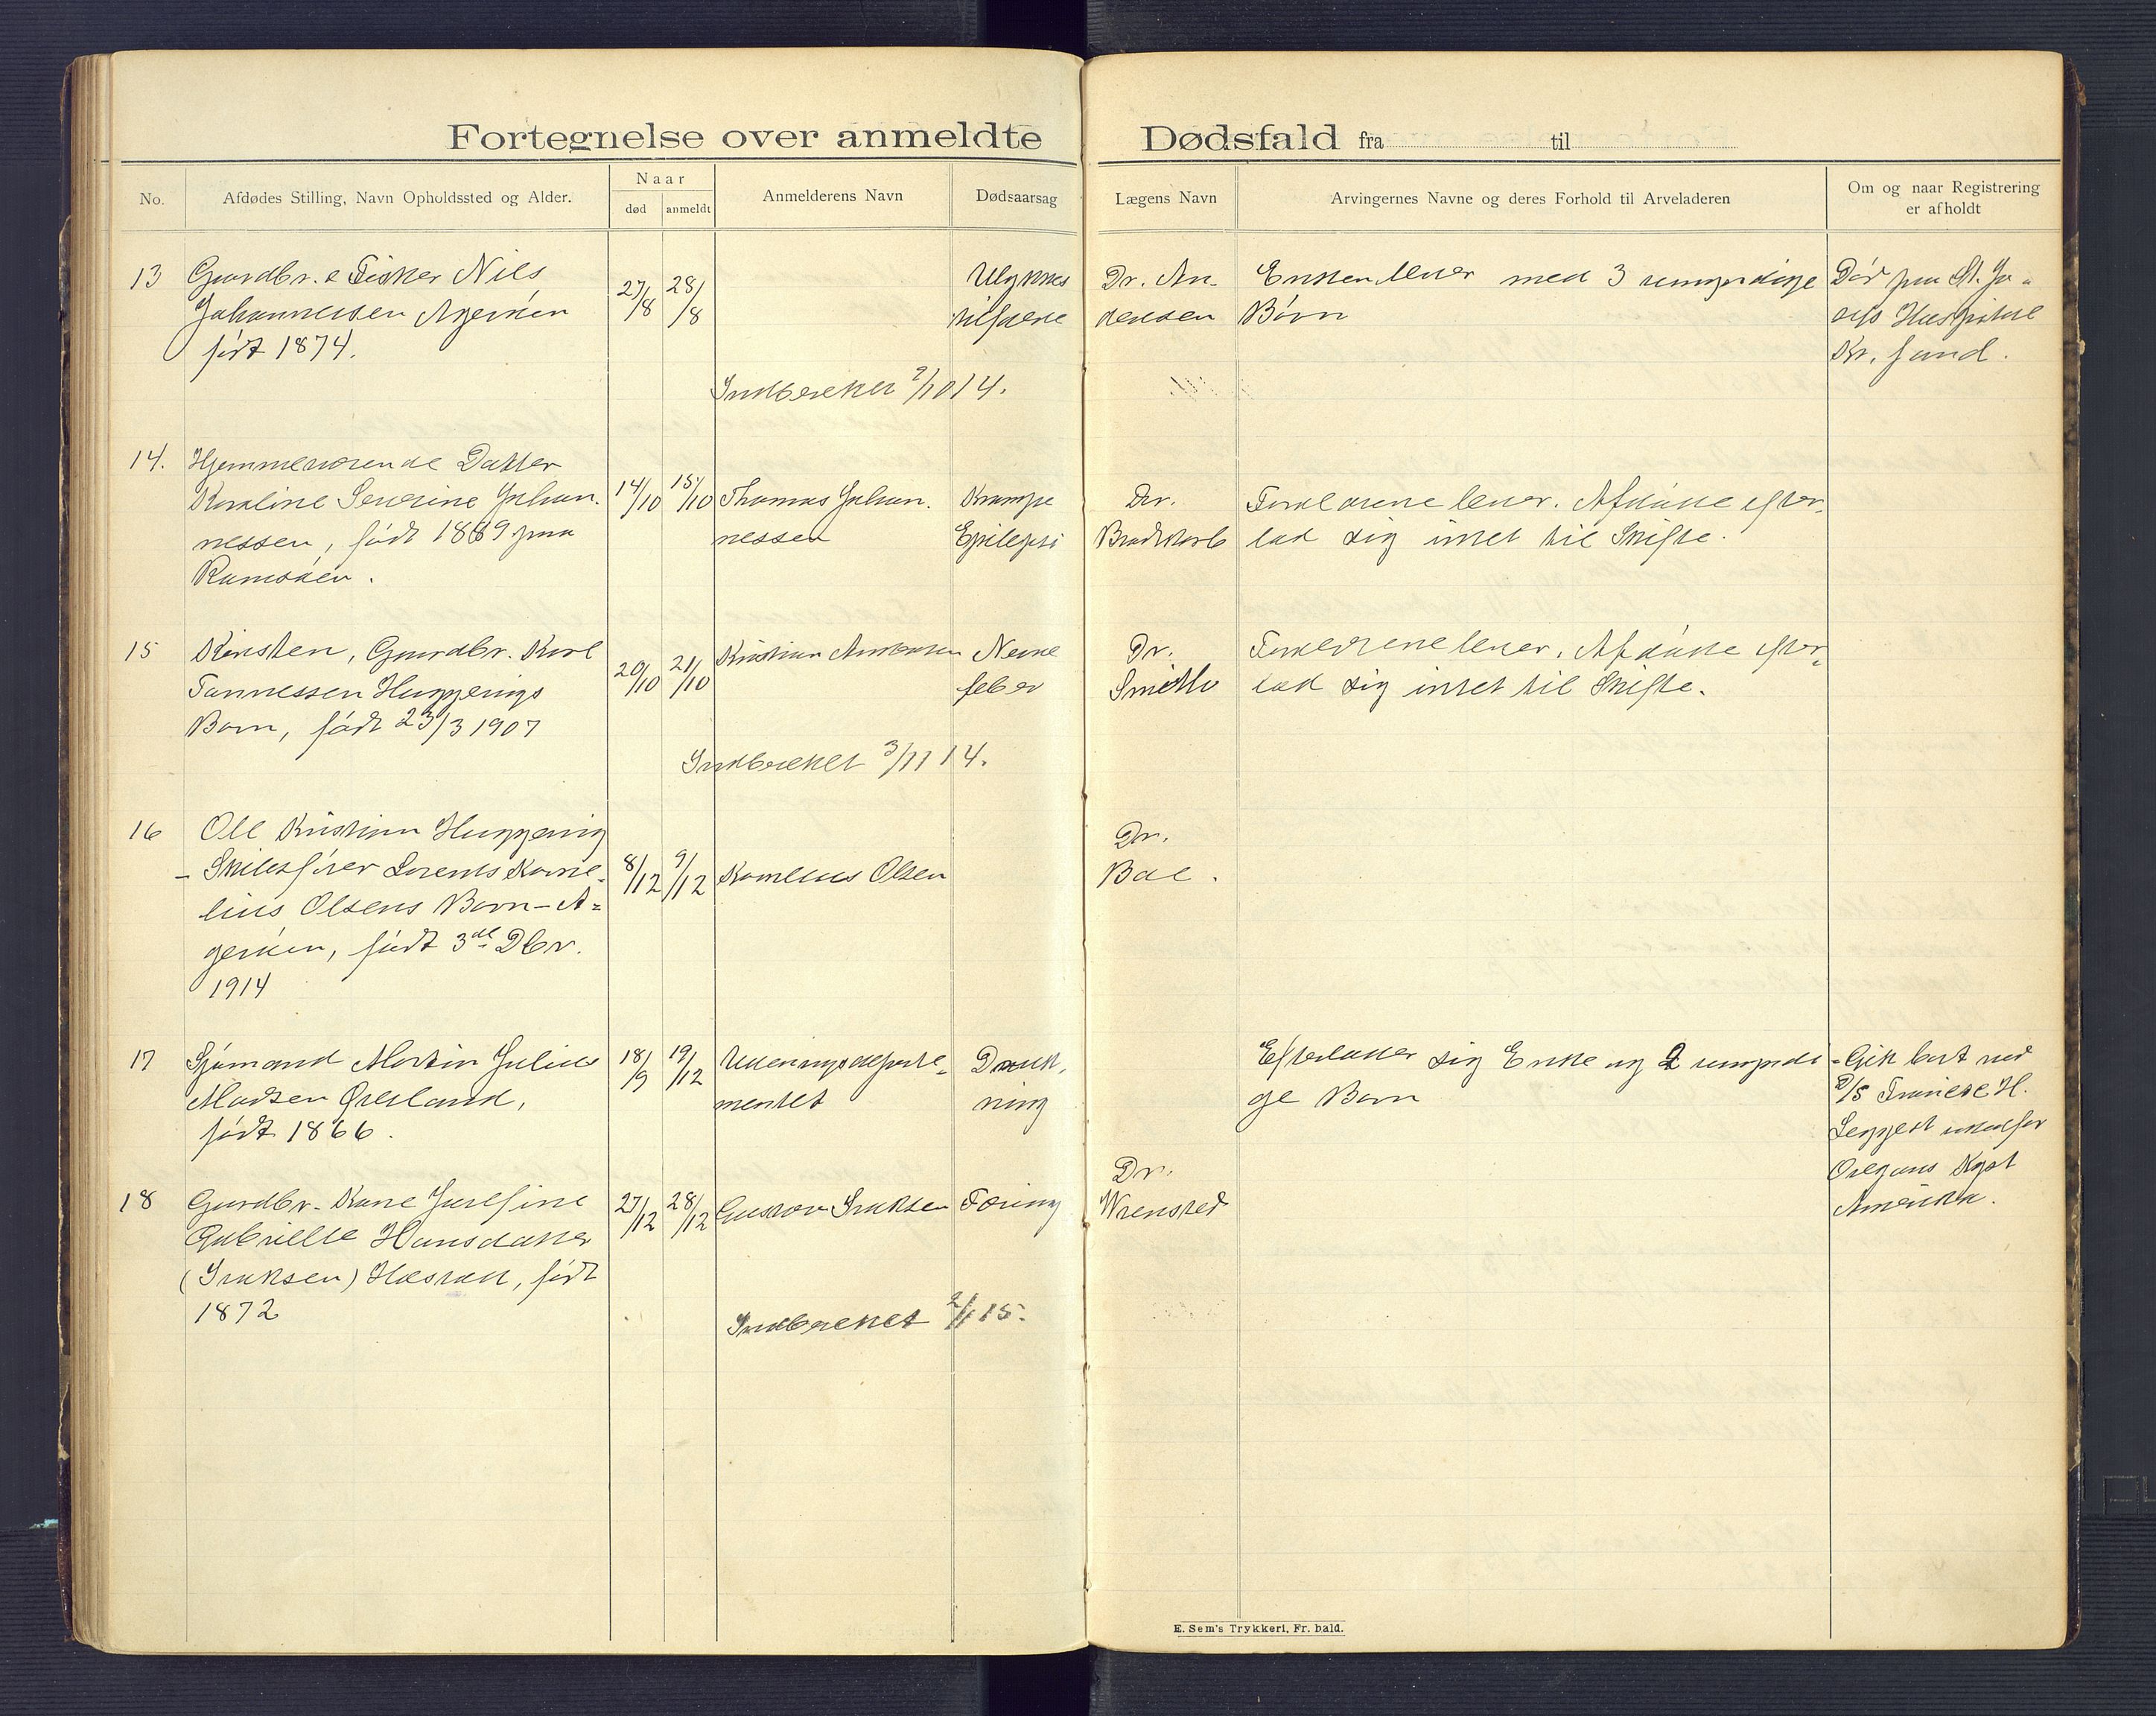 Fortegnelse over anmeldte Dødsfald fra til
No.
Afdødes Stilling, Navn Opholdssted og Alder.
Naar
død
anmeldt
Anmelderens Navn
Dødsaarsag
Lægens Navn
Arvingernes Navne og deres Forhold til Arveladeren
Om og naar Registrering
er afholdt
13
Gaardbr. & Fisker Nils
Johannessen Agerøen
født 1874.
27/8
28/8
Ulykkes
tilfælde
Dr. An-
dersen
Enken lever med 3 umyndige
Børn
Død paa St. Jo-
sefs Hospital
Kr. sand.
Indberettet 2/10 14.
14.
Hjemmeværende Datter
Karoline Severine Johan-
nessen, født 1889 paa
Ramsøen.
14/10
15/10
Thomas Johan-
nessen
Krampe
Epilepsi
Dr.
Forældrene lever. Afdøde efter-
lod sig intet til Skifte.
15
Kirsten, Gaardbr. Karl
Tønnessen Høggerings
Barn, født 23/3 1907
20/10
21/10
Kristian Andersen
Nerve
feber
Dr.
Smith
Forældrene lever. Afdøde efter-
lod sig intet til Skifte.
Indberettet 3/11 14.
16
Ole Kristian
- Skibsfører Lorents Korne-
lius Olsens Barn - A=
gerøen, født 3de Dbr.
1914
8/12
9/12
Kornelius Olsen
Dr.
Boe.
17
Sjømand Martin Julius
Madsen Øresland,
født 1866.
18/9
19/12
Udenrigsdeparte-
mentet
Druk-
ning
Efterlader sig Enke og 2 umyndi-
ge Barn
Gik bort med
D/S Francis H.
Leggett udenfor
Oregons Kyst
Amerika.
18
Gaardbr. Kone Josefine
Gabrielle Hansdatter
(Isaksen) Hæstad, født
1872
27/12
28/12
Gustav Isaksen
Tæring
Dr.
Wrensted
Indberettet 2/1 15.
E. Sem's Trykkeri, Fr. hald.